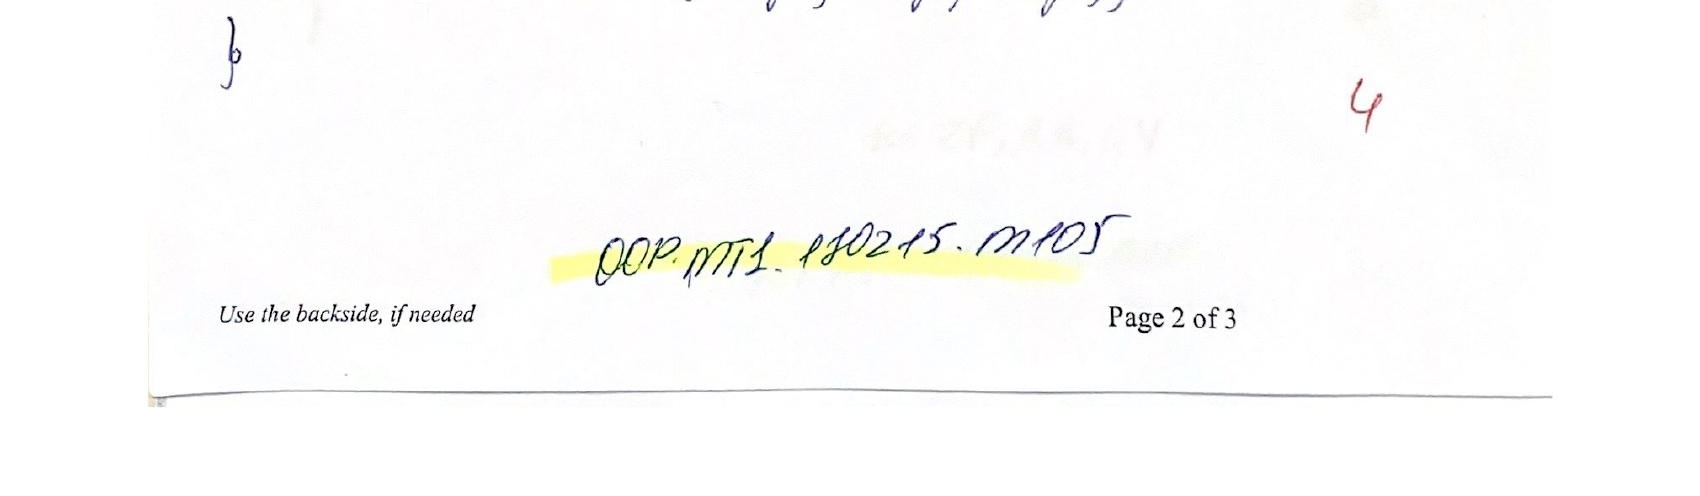 }
4
OOP.MT1.170215.M105
Use the backside, if needed
Page 2 of 3